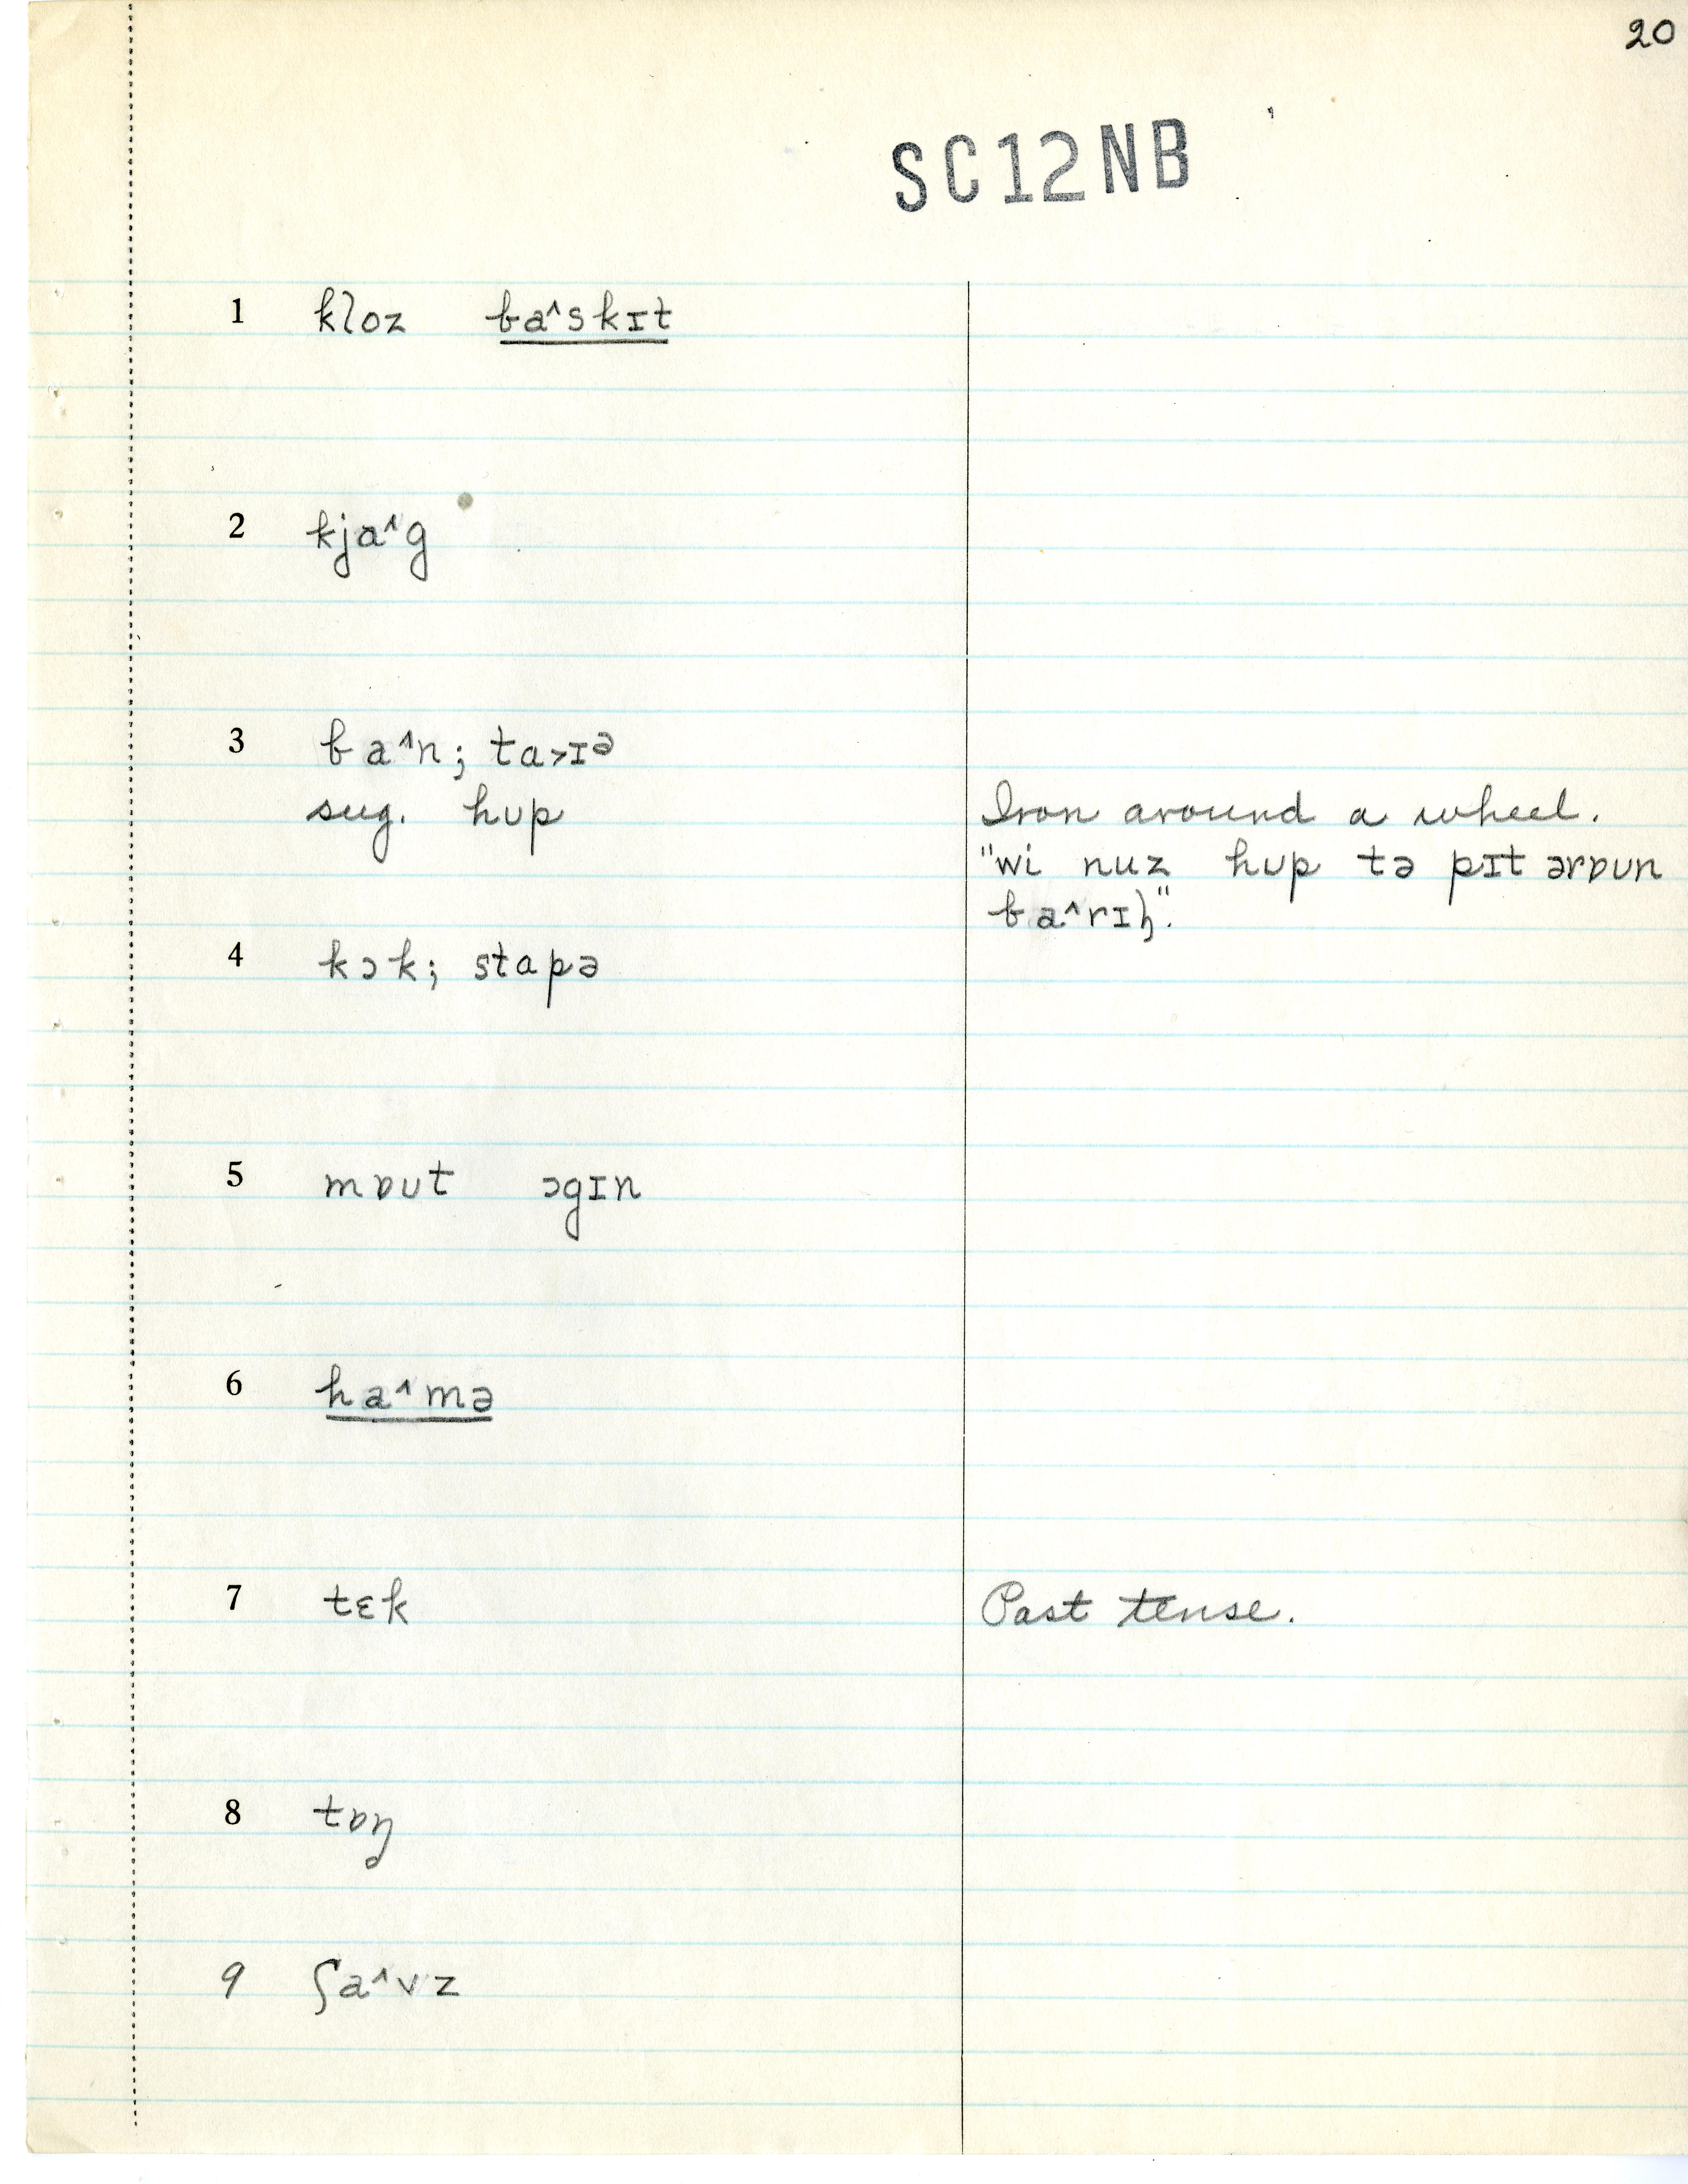 20
SC12NB
1 kloz ba˄skɪt
2 kja˄g
3 ba˄n; ta˃ɪᵊ
sug. hup Iron around a wheel.
"wi nuz hup tə pɪt ərɒun
ba˄rɪl̩".
4 kɔk; stapə
5 mɒut ɔgɪn
6 ha˄mə
7 tɛk Past tense.
8 tɒŋ
9 ʃa˄vz